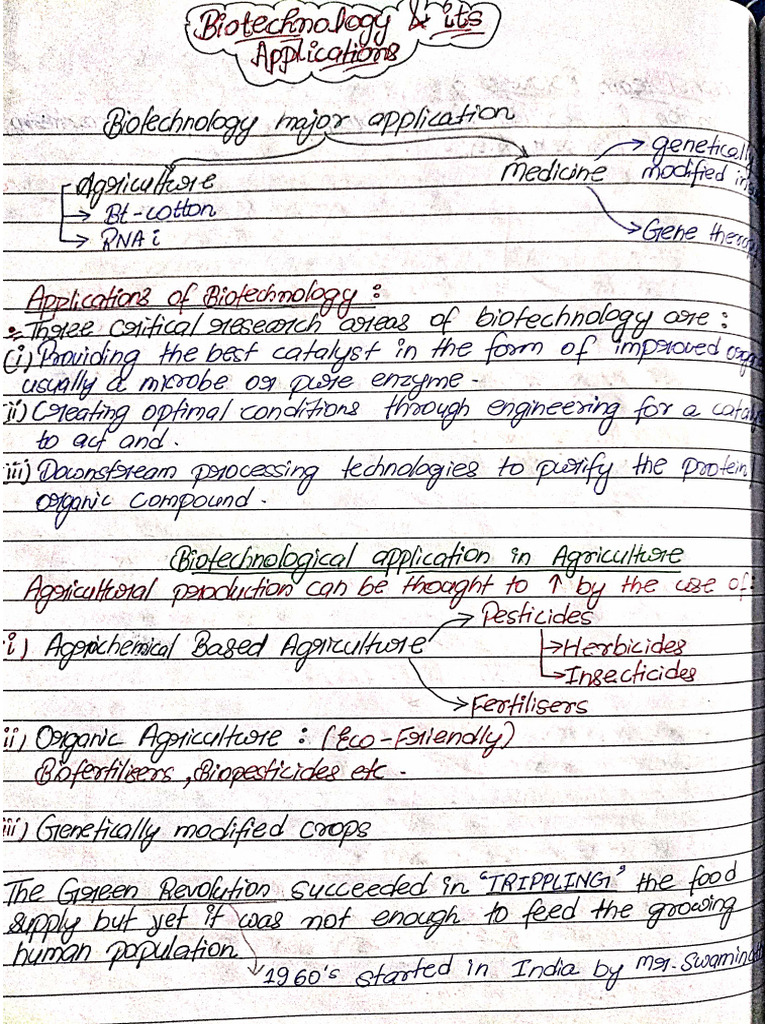 Biotechnology & its
Applications
Biotechnology major application
Agriculture
Bt-cotton
RNA i
Medicine
genetically
modified
Gene
Applications of Biotechnology :
Three critical research areas of biotechnology are :
(i) Providing the best catalyst in the form of improved
usually a microbe or pure enzyme.
ii) Creating optimal conditions through engineering for a
to act and.
iii) Downstream processing technologies to purify the protein
organic compound.
Biotechnological application in Agriculture
Agricultural production can be thought to ↑ by the use of
i) Agrochemical Based Agriculture
Pesticides
Herbicides
Insecticides
Fertilisers
ii) Organic Agriculture : (Eco-Friendly)
Biofertilisers, Biopesticides etc.
iii) Genetically modified crops
The Green Revolution succeeded in "TRIPPLING" the food
supply but yet it was not enough to feed the growing
human population
1960's started in India by Mr.